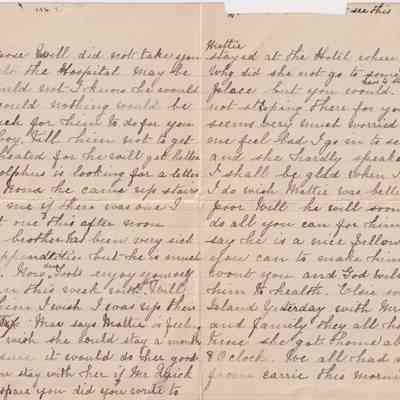 see this
pose Will did not take you
the Hospital may be
ould not I know he would
ould nothing would be
uch for him to do for you
boy. Tell him not to get
heated for he will get better
olphus is looking for a letter
Nora he came up stairs
me if there was one I
one this after noon
brother has been very sick
appendicitis but he is much
Now enjoy yourself
this week with Will
him I wish I was up there
May says Mattie is feeling
wish she could stay a month
sure it would do her good
stay with her if Mr Quick
spare you did you write to
Mattie
stayed at the Hotel where
Who did she not go to some
place but you would
not stoping there for you
seems very much worried
me feel bad I go in to see
and she hardly speaks
I shall be glad when
I do wish Mattie was better
poor Will he will soon
do all you can for him
say he is a nice fellow
you can to make him
wont you and God will
him to health. Elsie
Island yesterday with Mr
and family they all had
time she got home about
8 O'clock. We all had a
from carrie this morning